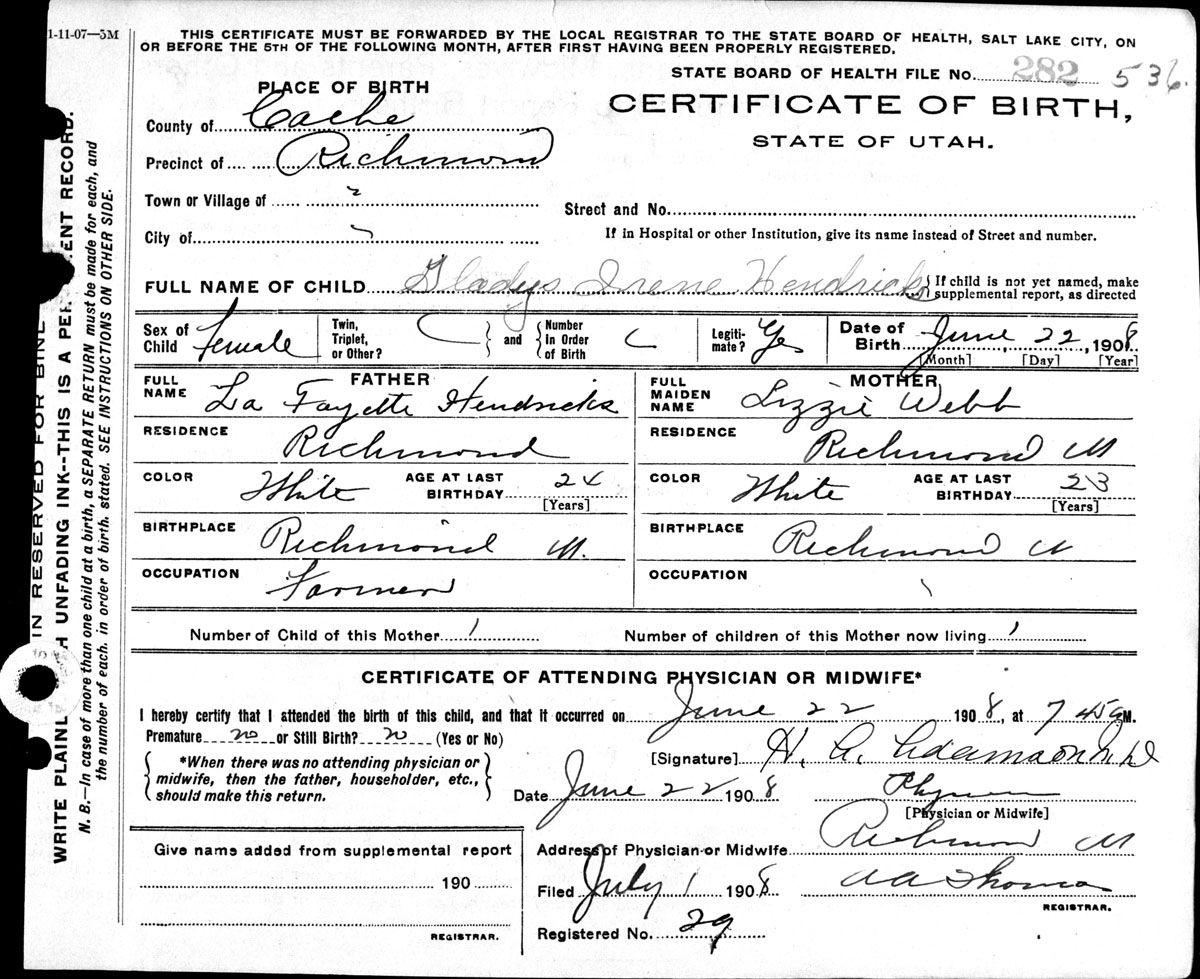 1-11-07—5M
THIS CERTIFICATE MUST BE FORWARDED BY THE LOCAL REGISTRAR TO THE STATE BOARD OF HEALTH, SALT LAKE CITY, ON
OR BEFORE THE 5TH OF THE FOLLOWING MONTH, AFTER FIRST HAVING BEEN PROPERLY REGISTERED.
STATE BOARD OF HEALTH FILE No. 282 536.
PLACE OF BIRTH
CERTIFICATE OF BIRTH,
STATE OF UTAH.
County of Cache
Precinct of Richmond
Town or Village of
City of
Street and No.
If in Hospital or other Institution, give its name instead of Street and number.
FULL NAME OF CHILD Gladys Irene Hendricks { If child is not yet named, make
supplemental report, as directed
Sex of Child Female
Twin, Triplet, or Other?
and
Number In Order of Birth
Legiti-mate? Yes
Date of Birth June 22, 1908
[Month] [Day] [Year]
FATHER
FULL NAME La Fayette Hendricks
RESIDENCE Richmond
COLOR White AGE AT LAST BIRTHDAY 24
[Years]
BIRTHPLACE Richmond U.
OCCUPATION Farmer
MOTHER
FULL MAIDEN NAME Lizzie Webb
RESIDENCE Richmond U
COLOR White AGE AT LAST BIRTHDAY 23
[Years]
BIRTHPLACE Richmond U
OCCUPATION
Number of Child of this Mother 1 Number of children of this Mother now living 1
CERTIFICATE OF ATTENDING PHYSICIAN OR MIDWIFE*
I hereby certify that I attended the birth of this child, and that it occurred on June 22 1908, at 7 45 a M.
Premature no or Still Birth? no (Yes or No)
*When there was no attending physician or
midwife, then the father, householder, etc.,
should make this return.
[Signature] H. A. Adamson M.D
Date June 22 1908
[Physician or Midwife]
Address of Physician or Midwife Richmond U
Filed July 1 1908 A A Thomas
REGISTRAR.
Registered No. 29
Give name added from supplemental report
190
REGISTRAR.
IN RESERVED FOR BIN
WRITE PLAINL H UNFADING INK--THIS IS A PER ENT RECORD.
N. B.—In case of more than one child at a birth, a SEPARATE RETURN must be made for each, and
the number of each, in order of birth, stated. SEE INSTRUCTIONS ON OTHER SIDE.